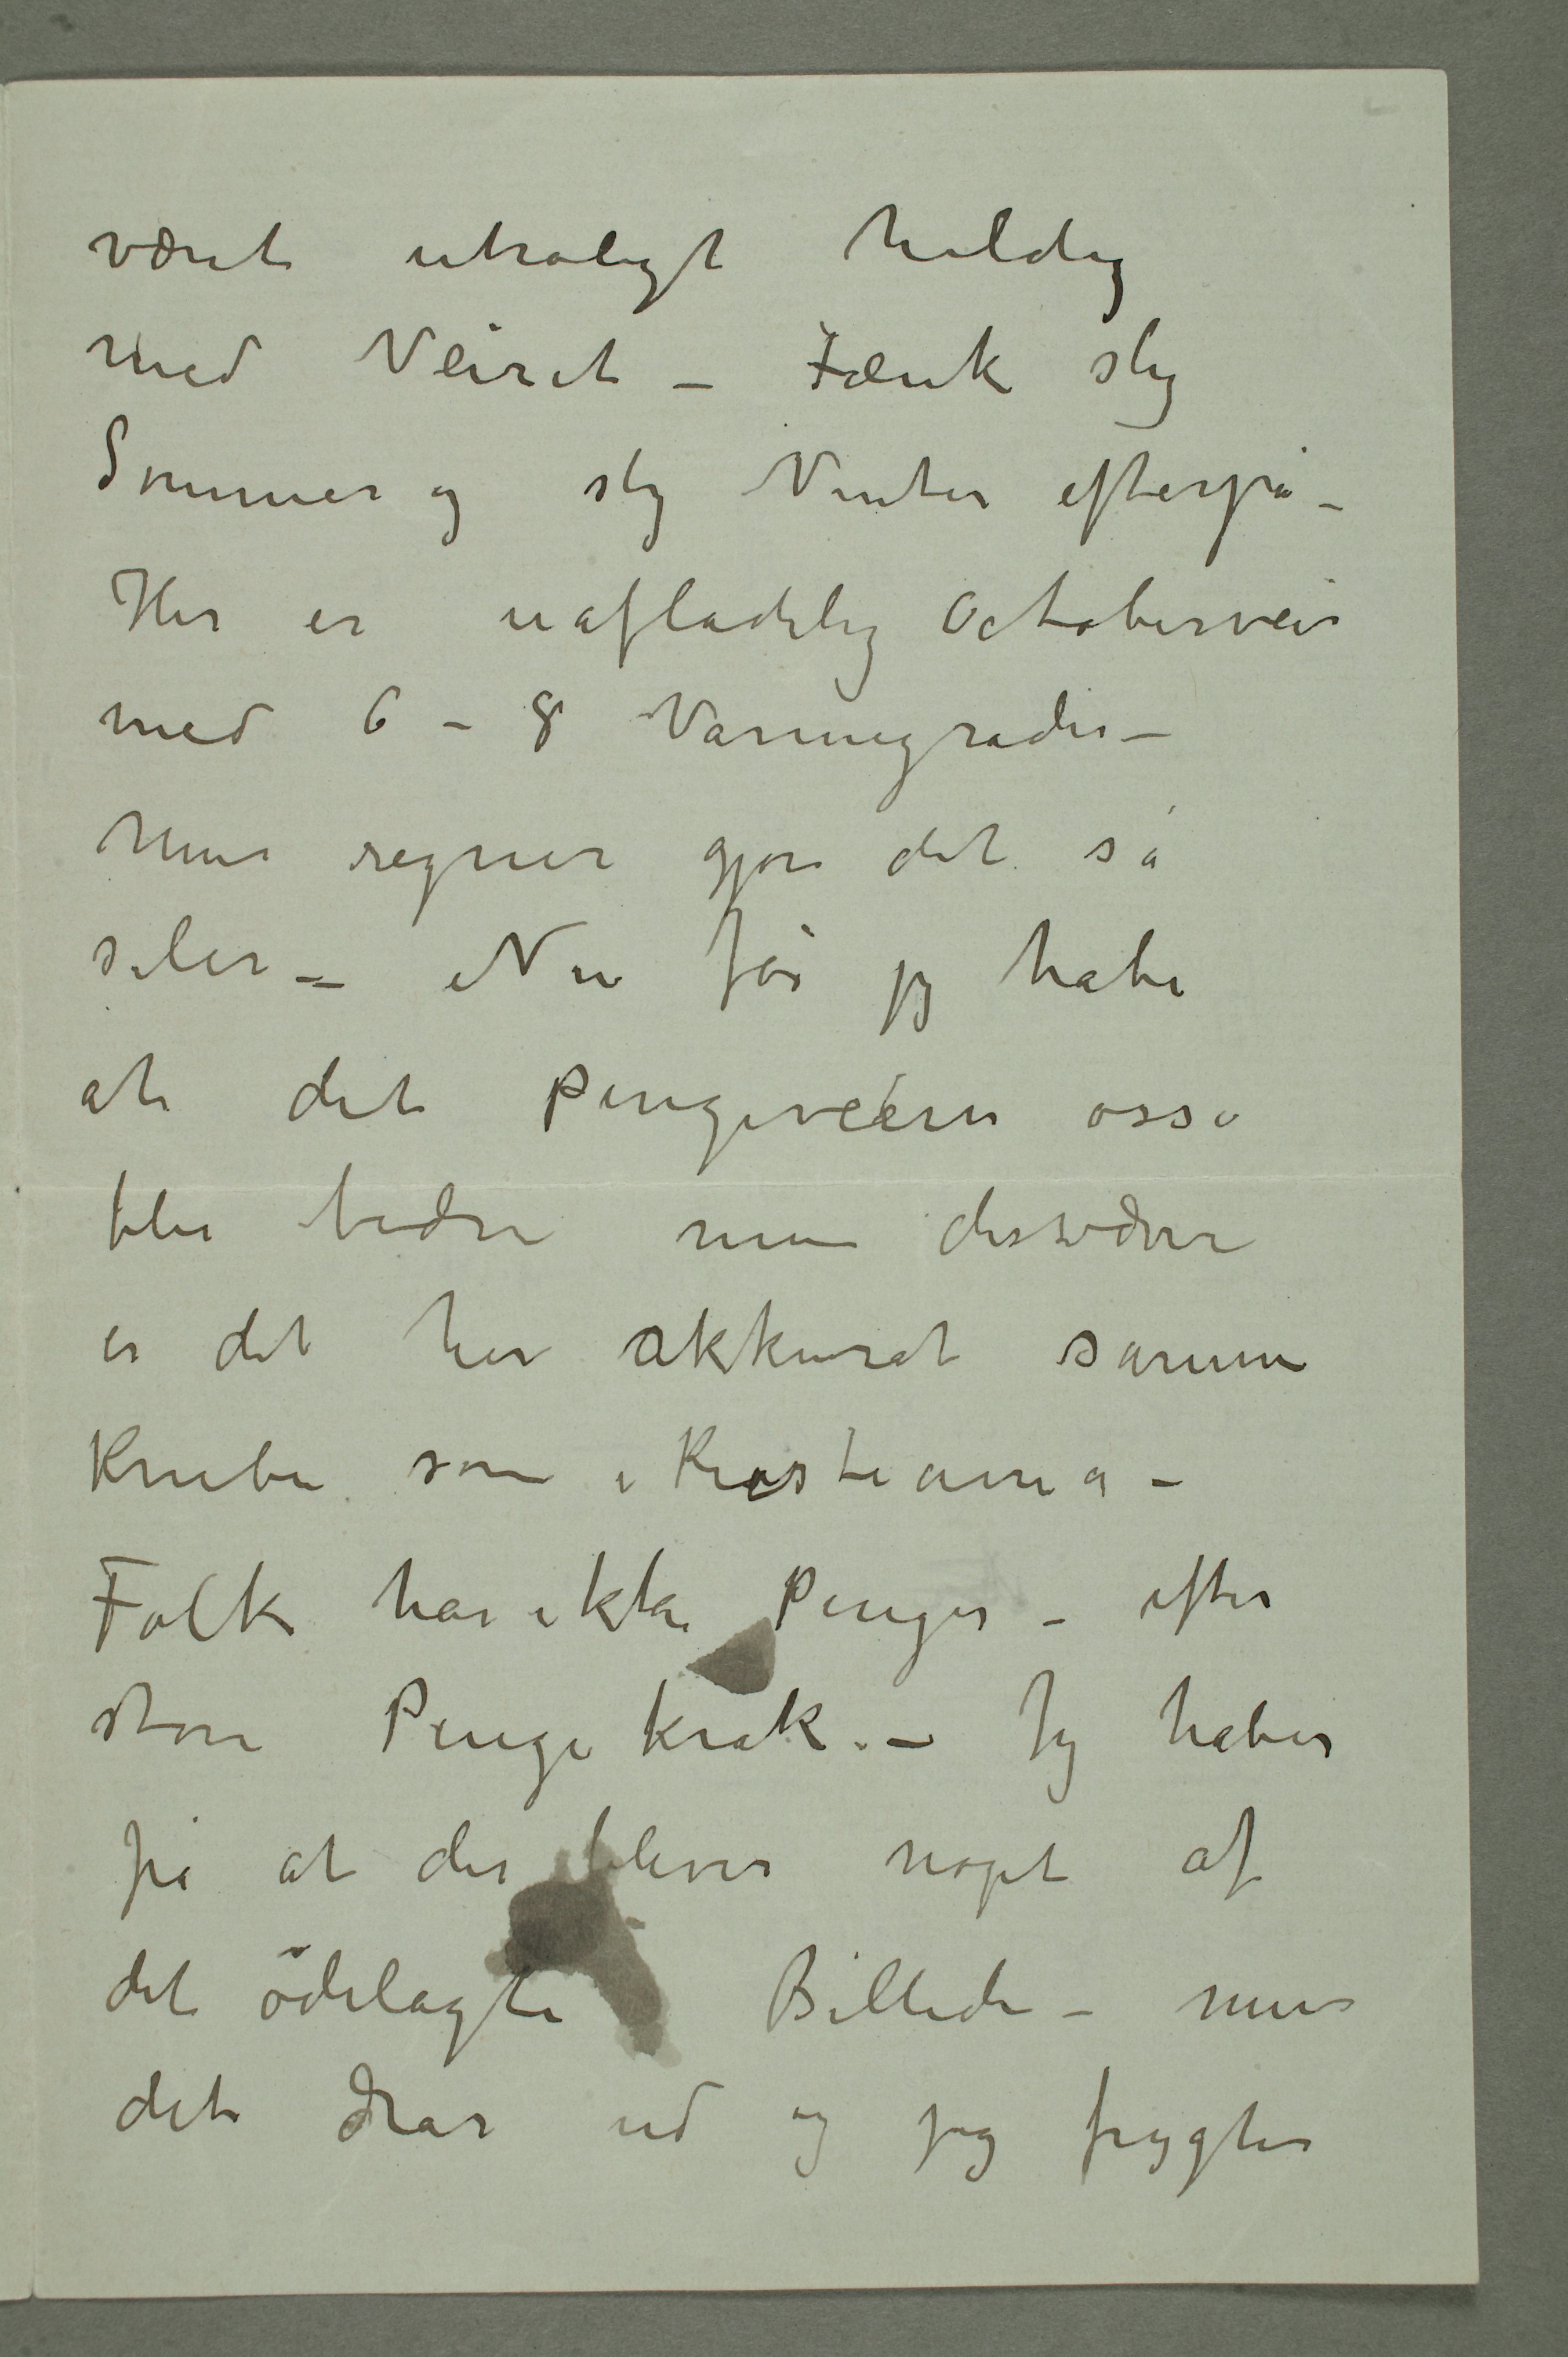 været utroligt heldig
med Veiret – Tænk slig
Sommer og slig Vinter efterpå –
Her er uafladelig Octoberveir
med 6 – 8 Varmegrader –
men regner gjør det så
siler – Nu får jeg håbe
at det Pengeveiret osså
blir bedre men desværre
er det her akkurat samme
Kneben som i Kristiania –
Folk har ikke Penger – efter
store Pengekrak. – Jeg håber
på at der bliver noget af
det ödelagte Billede – men
det drar ud og jeg frygter